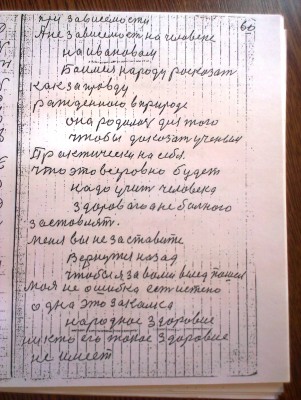 60
при зависемости
А не зависемост на человеке
на ивановам
Баимея народу росказат
как за правду
ражденного в природе
она родилас для того
чтобы доказат ученым
Практически на себя
что это всёровно будет
надо учит человека
здорового а не балного
заставлят.
меня вы не заставите
Вернутся назад
чтобы я за вами вслед пошел
моя не ошибка ест истено
одна это закалка
народное здоровие
никто его такое здоровие
не имеет